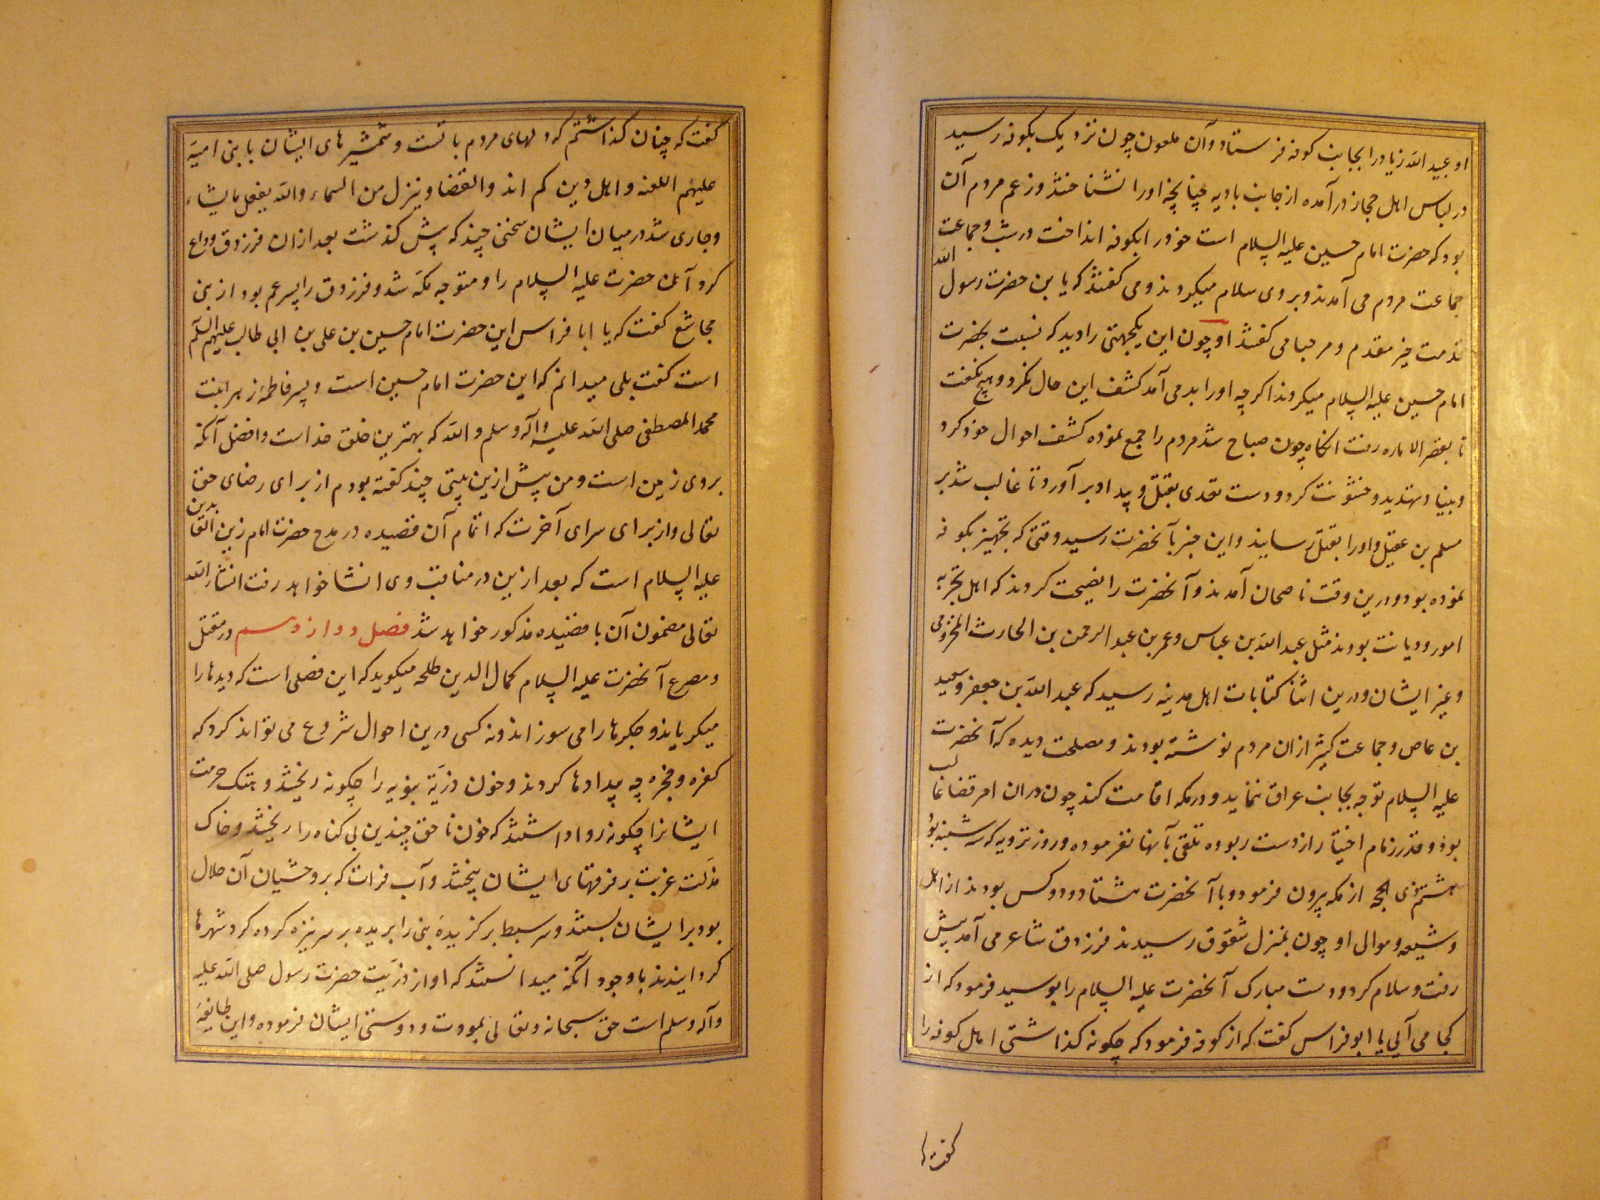 او عبید الله زیاد را بجانب کوفه فرستاد و آن ملعون چون نزدیک بکوفه رسید
در لباس اهل حجاز در آمده از جانب بادیه چنانچه او را نشناختند و زعم مردم آن
بود که حضرت امام حسین علیه السلام است خود را بکوفه انداخت در شب و جماعت
جماعت مردم می آمدند و بر وی سلام میکردند و می گفتند که یا بن حضرت رسول الله
قدمت خیر مقدم و مرحبا می گفتند او چون این یکجهتی را دید که نسبت بحضرت
امام حسین علیه السلام میکردند اگر چه او را بد می آمد کشف این حال نکرد و هیچ نگفت
تا بقصر الاماره رفت آنگاه چون صباح شد مردم را جمع نموده کشف احوال خود کرد
و بنیاد تهدید و خشونت کرد و دست تعدی بقتل و بیداد بر آورد تا غالب شد بر
مسلم بن عقیل و او را بقتل رسانید و این خبر بآنحضرت رسید وقتی که تجهیز بکوفه
نموده بود و درین وقت ناصحان آمدند و آنحضرت را نصیحت کردند که اهل تجربه
امور و دیانت بودند مثل عبد الله بن عباس و عمر بن عبد الرحمن بن الحارث المخزومی
و غیر ایشان و درین اثنا کتابات اهل مدینه رسید که عبد الله بن جعفر و سعید
بن عاص و جماعت کثیر از ان مردم نوشته بودند و مصلحت دیده که آنحضرت
علیه السلام توجه بجانب عراق ننماید و در مکه اقامت کند چون در ان امر قضا غالب
بود و قدر زمام اختیار از دست ربوده تلقی بآنها نفرموده و روز ترویه که سه شنبه بود
هشتم ذی الحجه از مکه بیرون فرمود و با آنحضرت هشتاد و دو کس بودند از اهل
و شیعه و موالی او چون بمنزل شقوق رسیدند فرزدق شاعر می آمد پیش
رفت و سلام کرد و دست مبارک آنحضرت علیه السلام را بوسید فرمود که از
کجا می آیی یا ابو فراس گفت که از کوفه فرمود که چگونه گذاشتی اهل کوفه را
گفت که
گفت که چنان گذاشتم که دلهای مردم با تست و شمشیرهای ایشان با بنی امیه
علیهم اللعنه و اهل دین کم اند و القضا و ینزل من السماء و الله یفعل ما یشاء
و جاری شد در میان ایشان سخنی چند که پیش گذشت بعد از ان فرزدق وداع
کرد آن حضرت علیه السلام را و متوجه مکه شد و فرزدق را پسر عم بود از بنی
مجاشع گفت که یا ابا فراس این حضرت امام حسین بن علی بن ابی طالب علیهم السلام
است گفت بلی میدانم که این حضرت امام حسین است و پسر فاطمه زهرا بنت
محمد المصطفی صلی الله علیه و آله و سلم و الله که بهترین خلق خداست و افضل آنکه
بروی زمین است و من پیش ازین بیتی چند گفته بودم از برای رضای حق
تعالی و از برای سرای آخرت که اتمام آن قصیده در مدح حضرت امام زین العابدین
علیه السلام است که بعد ازین در مناقب وی انشا خواهد رفت انشاء الله
تعالی مضمون آن با قصیده مذکور خواهد شد فصل دوازدهم در مقتل
و مصرع آنحضرت علیه السلام کمال الدین طلحه میگوید که این فصلی است که دیدها را
میگریاند و جگرها را می سوزاند و نه کسی درین احوال شروع می تواند کرد که
کفره و فجره چه بیدادها کردند و خون ذریه نبویه را چگونه ریختند و هتک حرمت
ایشانرا چگونه روا داشتند که خون ناحق چندین بی گناه را ریختند و خاک
مذلت غربت بر فرقهای ایشان بیختند و آب فرات که بر وحشیان آن حلال
بود بر ایشان بستند و سر سبط برگزیده نبی را بریده بر سر نیزه کرده گرد شهرها
گردانیدند با وجود آنکه میدانستند که او از ذریت حضرت رسول صلی الله علیه
و آله و سلم است حق سبحانه و تعالی بمودت و دوستی ایشان فرموده و این طایفه